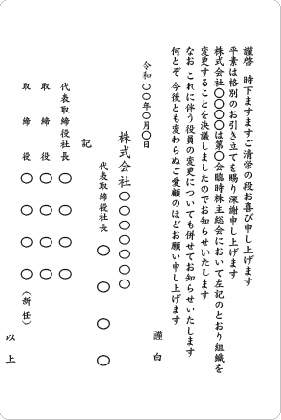 謹啓　時下ますますご清栄の段お喜び申し上げます
平素は格別のお引き立てを賜り深謝申し上げます
株式会社〇〇〇〇は第〇会臨時株主総会において左記のとおり組織を
変更することを決議しましたのでお知らせいたします
なお これに伴う役員の変更についても併せてお知らせいたします
何とぞ 今後とも変わらぬご愛顧のほどお願い申し上げます
謹白
令和〇〇年〇月〇日
株式会社〇〇〇〇〇〇
代表取締役社長　〇〇〇〇
記
代表取締役社長　〇〇〇〇
取締役　〇〇〇〇
取締役　〇〇〇〇（新任）
以上